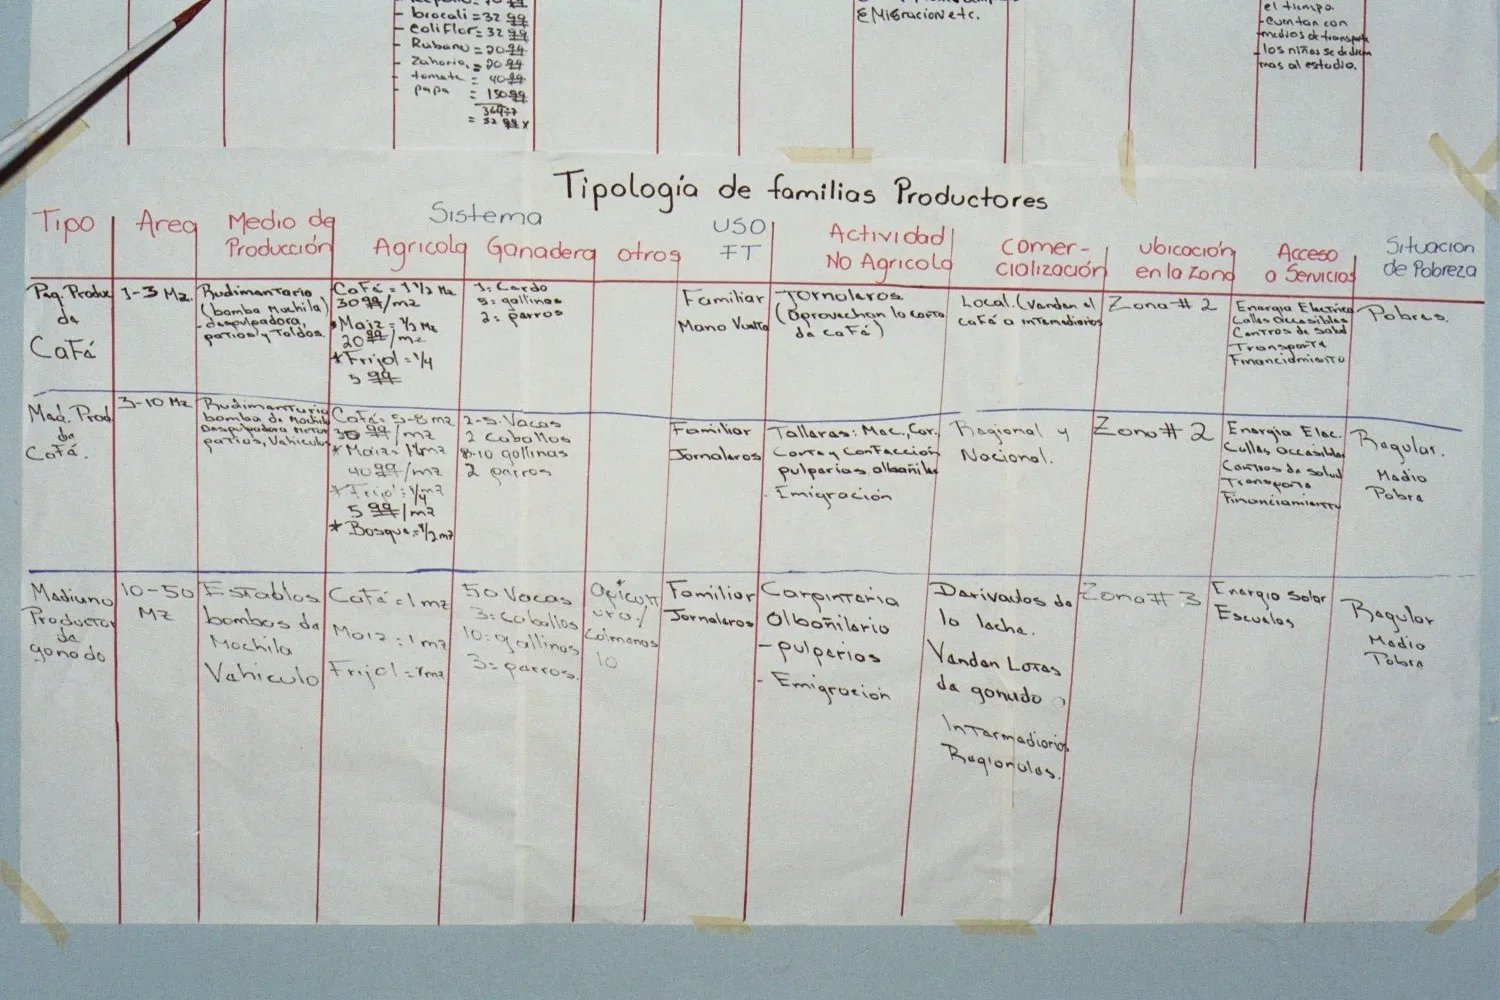 brocali = 32 qq
coliFlor = 32 qq
Rabano = 20 qq
Zahoria = 20 qq
tomate = 40 qq
papa = 150 qq
EMIGracion etc.
el tiempo.
- Cuentan con
medios de transporte
los niños se dedican
mas al estudio.
Tipología de familias Productores
Tipo
Area
Medio de
Producción
Sistema
Agricola
Ganadera
otros
USO
FT
Actividad
No Agricola
Comer-
cialización
ubicación
en la zona
Acceso
a Servicios
Situacion
de Pobreza
Peq. Produc
de
CaFé
1-3 Mz.
Rudimentario
(bomba Mochila)
- despulpadora,
patios y Toldos.
CaFé = 1 1/2 Mz
30 qq/mz
* Maiz = 1/2 Mz
20 qq/mz
* Frijol = 1/4
5 qq
1: Cerdo
5: gallinas
2: perros
Familiar
Mano Vuelta
Jornaleros
(aprovechan la corta
de caFé)
Local. (Venden el
caFé a intermediarios
Zona # 2
Energia Electrica
Calles Accesibles
Centros de Salud
Transporte
Financiamiento
Pobres.
Med. Prod
de
CaFé.
3-10 Mz
Rudimentario
bomba de Mochila
Despulpadora Motor
patios, Vehiculo
CaFé = 5-8 mz
30 qq/mz
* Maiz = 1 mz
40 qq/mz
* Frijol: 1/4 mz
5 qq/mz
* Bosque = 1/2 mz
2-5 Vacas
2 Caballos
8-10 gallinas
2 perros
Familiar
Jornaleros
Talleres: Mec, Car.
Corte y Confección
pulperias, albañiles
- Emigración
Regional y
Nacional.
Zona # 2
Energia Elec.
Calles Accesibles
Centros de salud
Transporte
Financiamiento
Regular.
Medio
Pobre
Mediano
Productor
de
ganado
10-50
Mz
Establos
bombas de
Mochila
Vehiculo
CaFé = 1 mz
Maiz : 1 mz
Frijol = 1 mz
50 Vacas
3: Caballos
10: gallinas
3: perros.
Apicult
ura:/
Colmenas
10
Familiar
Jornaleros
Carpinteria
Albañilería
- pulperias
- Emigración
Derivados de
la leche.
Venden Lotes
de ganado a
Intermediarios
Regionales.
Zona # 3
Energia solar
Escuelas
Regular
Medio
Pobre